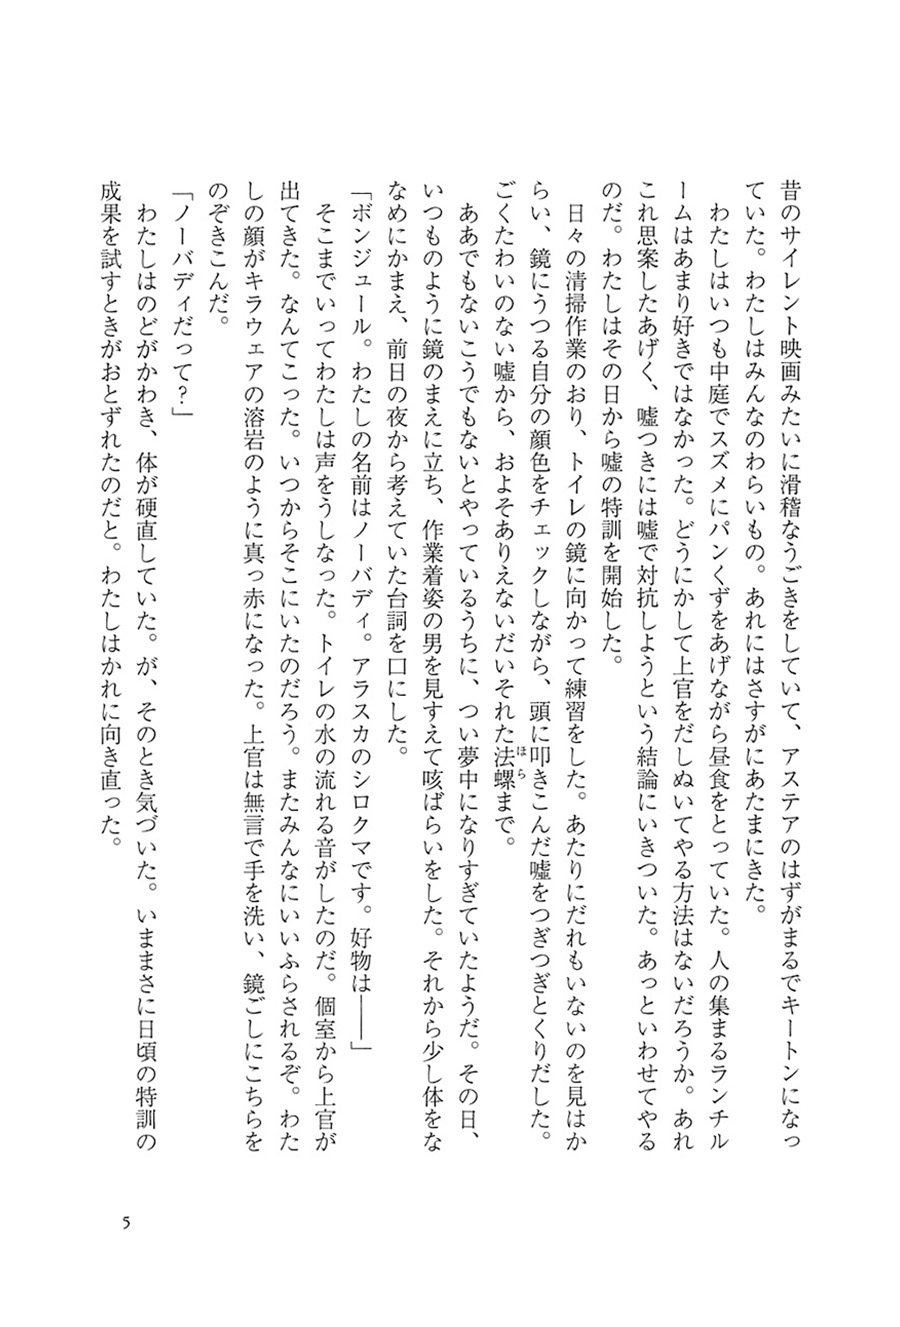 昔のサイレント映画みたいに滑稽なうごきをしていて、アステアのはずがまるでキートンになっ
ていた。わたしはみんなのわらいもの。あれにはさすがにあたまにきた。
　わたしはいつも中庭でスズメにパンくずをあげながら昼食をとっていた。人の集まるランチル
ームはあまり好きではなかった。どうにかして上官をだしぬいてやる方法はないだろうか。あれ
これ思案したあげく、嘘つきには嘘で対抗しようという結論にいきついた。あっといわせてやる
のだ。わたしはその日から嘘の特訓を開始した。
　日々の清掃作業のおり、トイレの鏡に向かって練習をした。あたりにだれもいないのを見はか
らい、鏡にうつる自分の顔色をチェックしながら、頭に叩きこんだ嘘をつぎつぎとくりだした。
ごくたわいのない嘘から、およそありえないだいそれた法螺まで。
ほら
　ああでもないこうでもないとやっているうちに、つい夢中になりすぎていたようだ。その日、
いつものように鏡のまえに立ち、作業着姿の男を見すえて咳ばらいをした。それから少し体をな
なめにかまえ、前日の夜から考えていた台詞を口にした。
「ボンジュール。わたしの名前はノーバディ。アラスカのシロクマです。好物は――」
　そこまでいってわたしは声をうしなった。トイレの水の流れる音がしたのだ。個室から上官が
出てきた。なんてこった。いつからそこにいたのだろう。またみんなにいいふらされるぞ。わた
しの顔がキラウェアの溶岩のように真っ赤になった。上官は無言で手を洗い、鏡ごしにこちらを
のぞきこんだ。
「ノーバディだって？」
　わたしはのどがかわき、体が硬直していた。が、そのとき気づいた。いままさに日頃の特訓の
成果を試すときがおとずれたのだと。わたしはかれに向き直った。
5